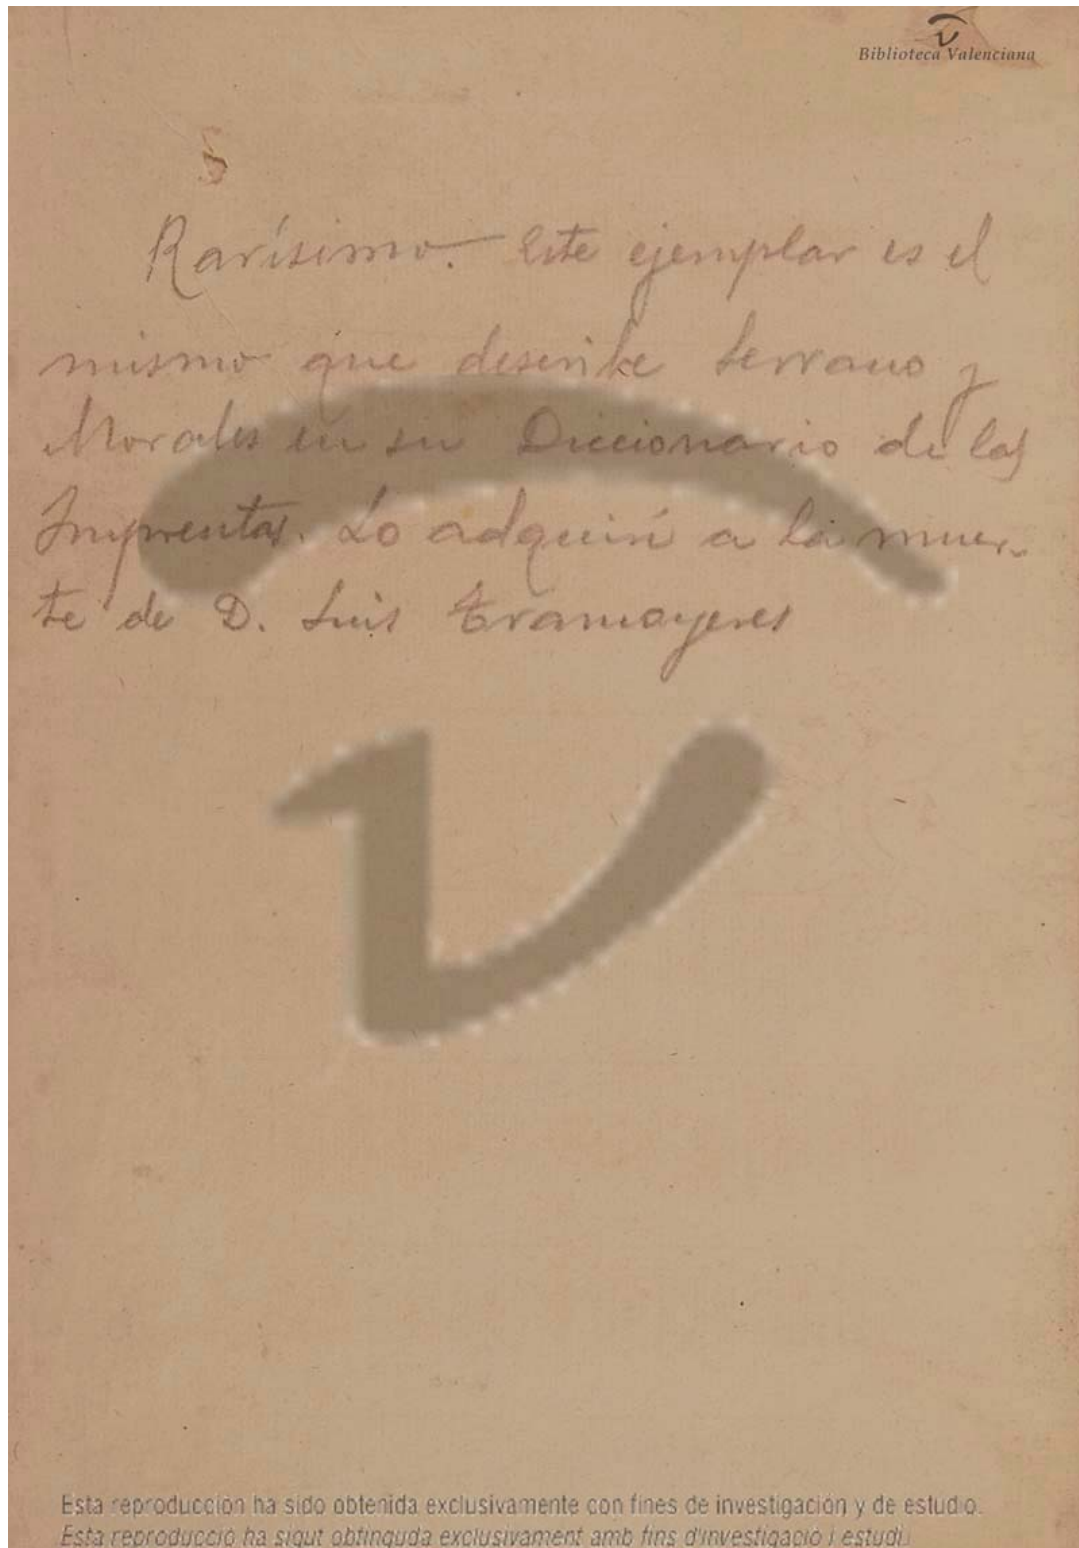 Biblioteca Valenciana
Rarísimo. Este ejemplar es el
mismo que describe Serrano y
Morales en su Diccionario de las
Imprentas. Lo adquirí a la muer-
te de D. Luis Tramoyeres
Esta reproducción ha sido obtenida exclusivamente con fines de investigación y de estudio.
Esta reproducció ha sigut obtinguda exclusivament amb fins d'investigació i estudi.